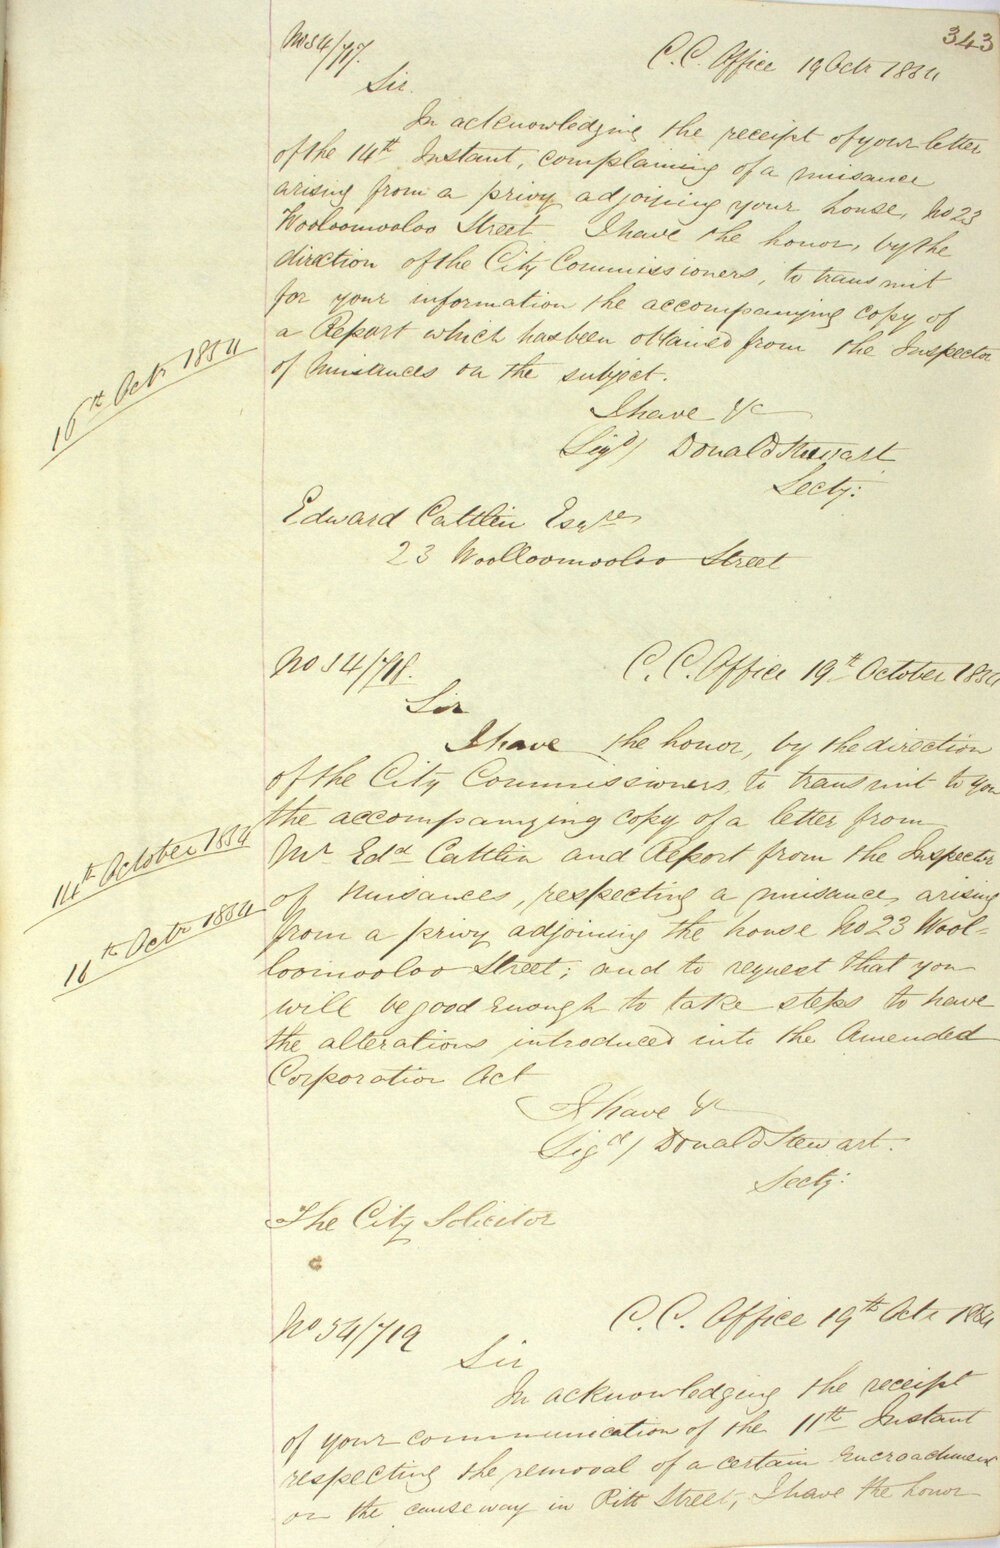 343
No 54/717.
C. C. Office 19 Octr 1854
Sir.
In acknowledging the receipt of your letter
of the 14th Instant, complaining of a nuisance
arising from a privy adjoining your house, No 23
Wooloomooloo Street I have the honor, by the
direction of the City Commissioners, to transmit
for your information the accompanying copy of
a Report which has been obtained from the Inspector
16th Octr 1854
of Nuisances on the subject.
I have &c
Sigd/ Donald Stewart
Secty:
Edward Cattlin Esqre
23 Woolloomooloo Street
No 54/718.
C. C. Office 19th October 1854
Sir
I have the honor, by the direction
of the City Commissioners, to transmit to you
the accompanying copy of a letter from
14th October 1854
Mr Edd Cattlin and Report from the Inspector
of Nuisances, respecting a nuisance, arising
16th Octr 1854
from a privy adjoining the house No 23 Wool=
loomooloo Street; and to request that you
will be good enough to take steps to have
the alterations introduced into the Amended
Corporation Act
I have &c
Sigd/ Donald Stewart.
Secty:
The City Solicitor
No 54/719
C. C. Office 19th Octr 1854
Sir
In acknowledging the receipt
of your communication of the 11th Instant
respecting the removal of a certain encroachment
on the causeway in Pitt Street, I have the honor